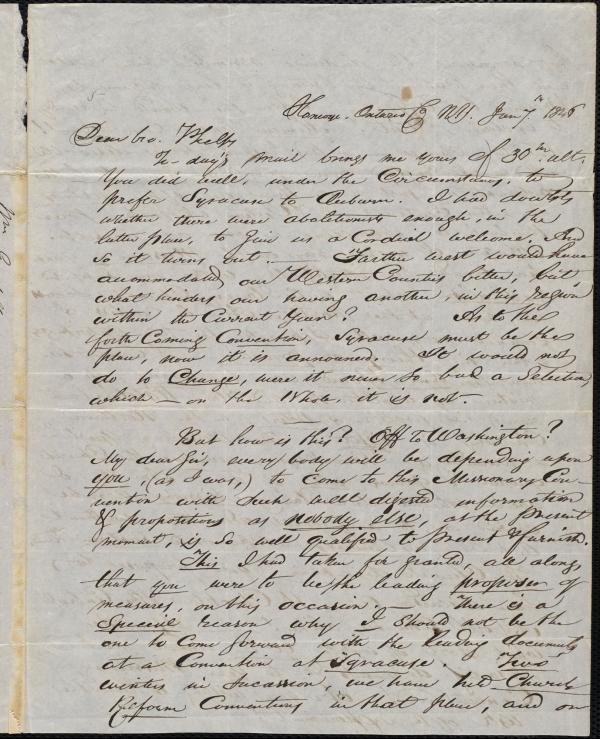 Honeoye. Ontario Co NY. Jan 7.th 1846
Dear bro. Phelps
To-day's mail brings me yours of 30th ult.
You did well, under the Circumstances, to
prefer Syracuse to Auburn. I had doubts
whether there were abolitionists enough, in the
latter place, to give us a Cordial welcome. And
so it turns out. — Farther west would have
accommodated our Western Counties better, but
what hinders our having another, in this region
within the Current Year? As to the
forth Coming Convention, Syracuse must be the
place, now it is announced. It would not
do to Change, were it never so bad a Selection,
which — on the Whole, it is not.
But how is this? Off To Washington?
My dear Sir, every body will be depending upon
you, (as I was,) to come to this Missionary Con-
vention with such well digested information
& propositions as nobody else, at the present
moment, is so well qualified to present & furnish.
This I had taken for granted, all along,
that you were to be the leading proposer of
measures, on this occasion. — There is a
Special reason why I should not be the
one to Come forward with the leading documents
at a Convention at Syracuse. Two
winters in succession, we have held Church
Reform Conventions in that place, and on